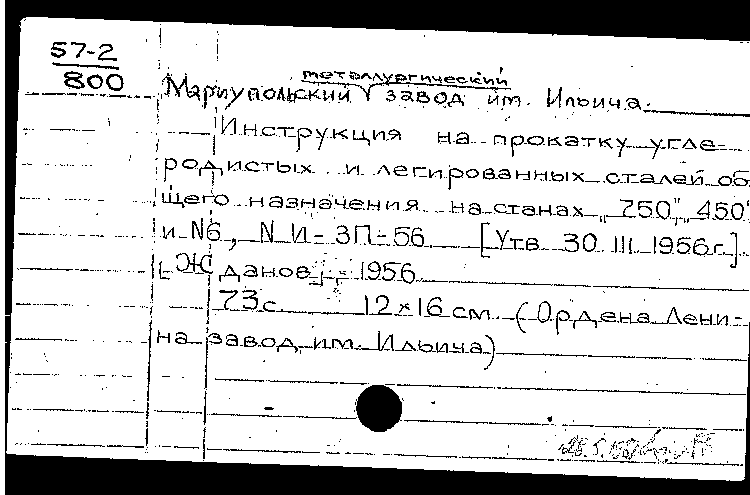 57-2
800
металлургический
Мариупольский завод им. Ильича.
Инструкция на прокатку угле-
родистых и легированных сталей об
щего назначения на станах „750", „450"
и №6, N И-3П-56 [Утв 30 III 1956г.].
[Жданов], 1956
73с. 12×16 см (Ордена Лени-
на завод им. Ильича)